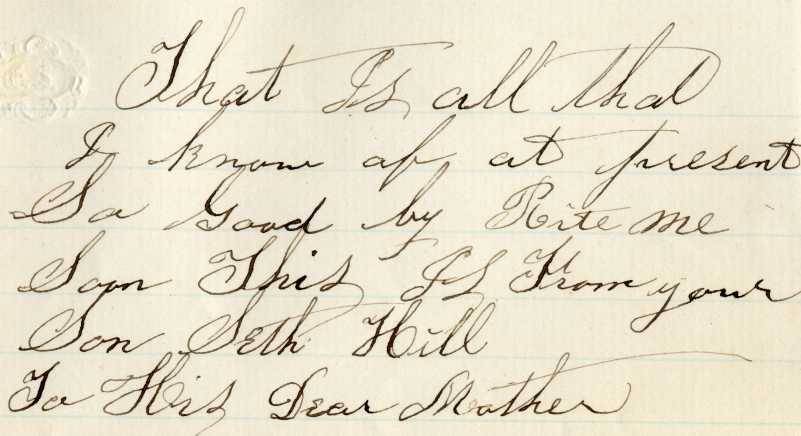 That Is all that
I know of at present
So Good by Rite me
Soon This Is From your
Son Seth Hill
To His Dear Mother